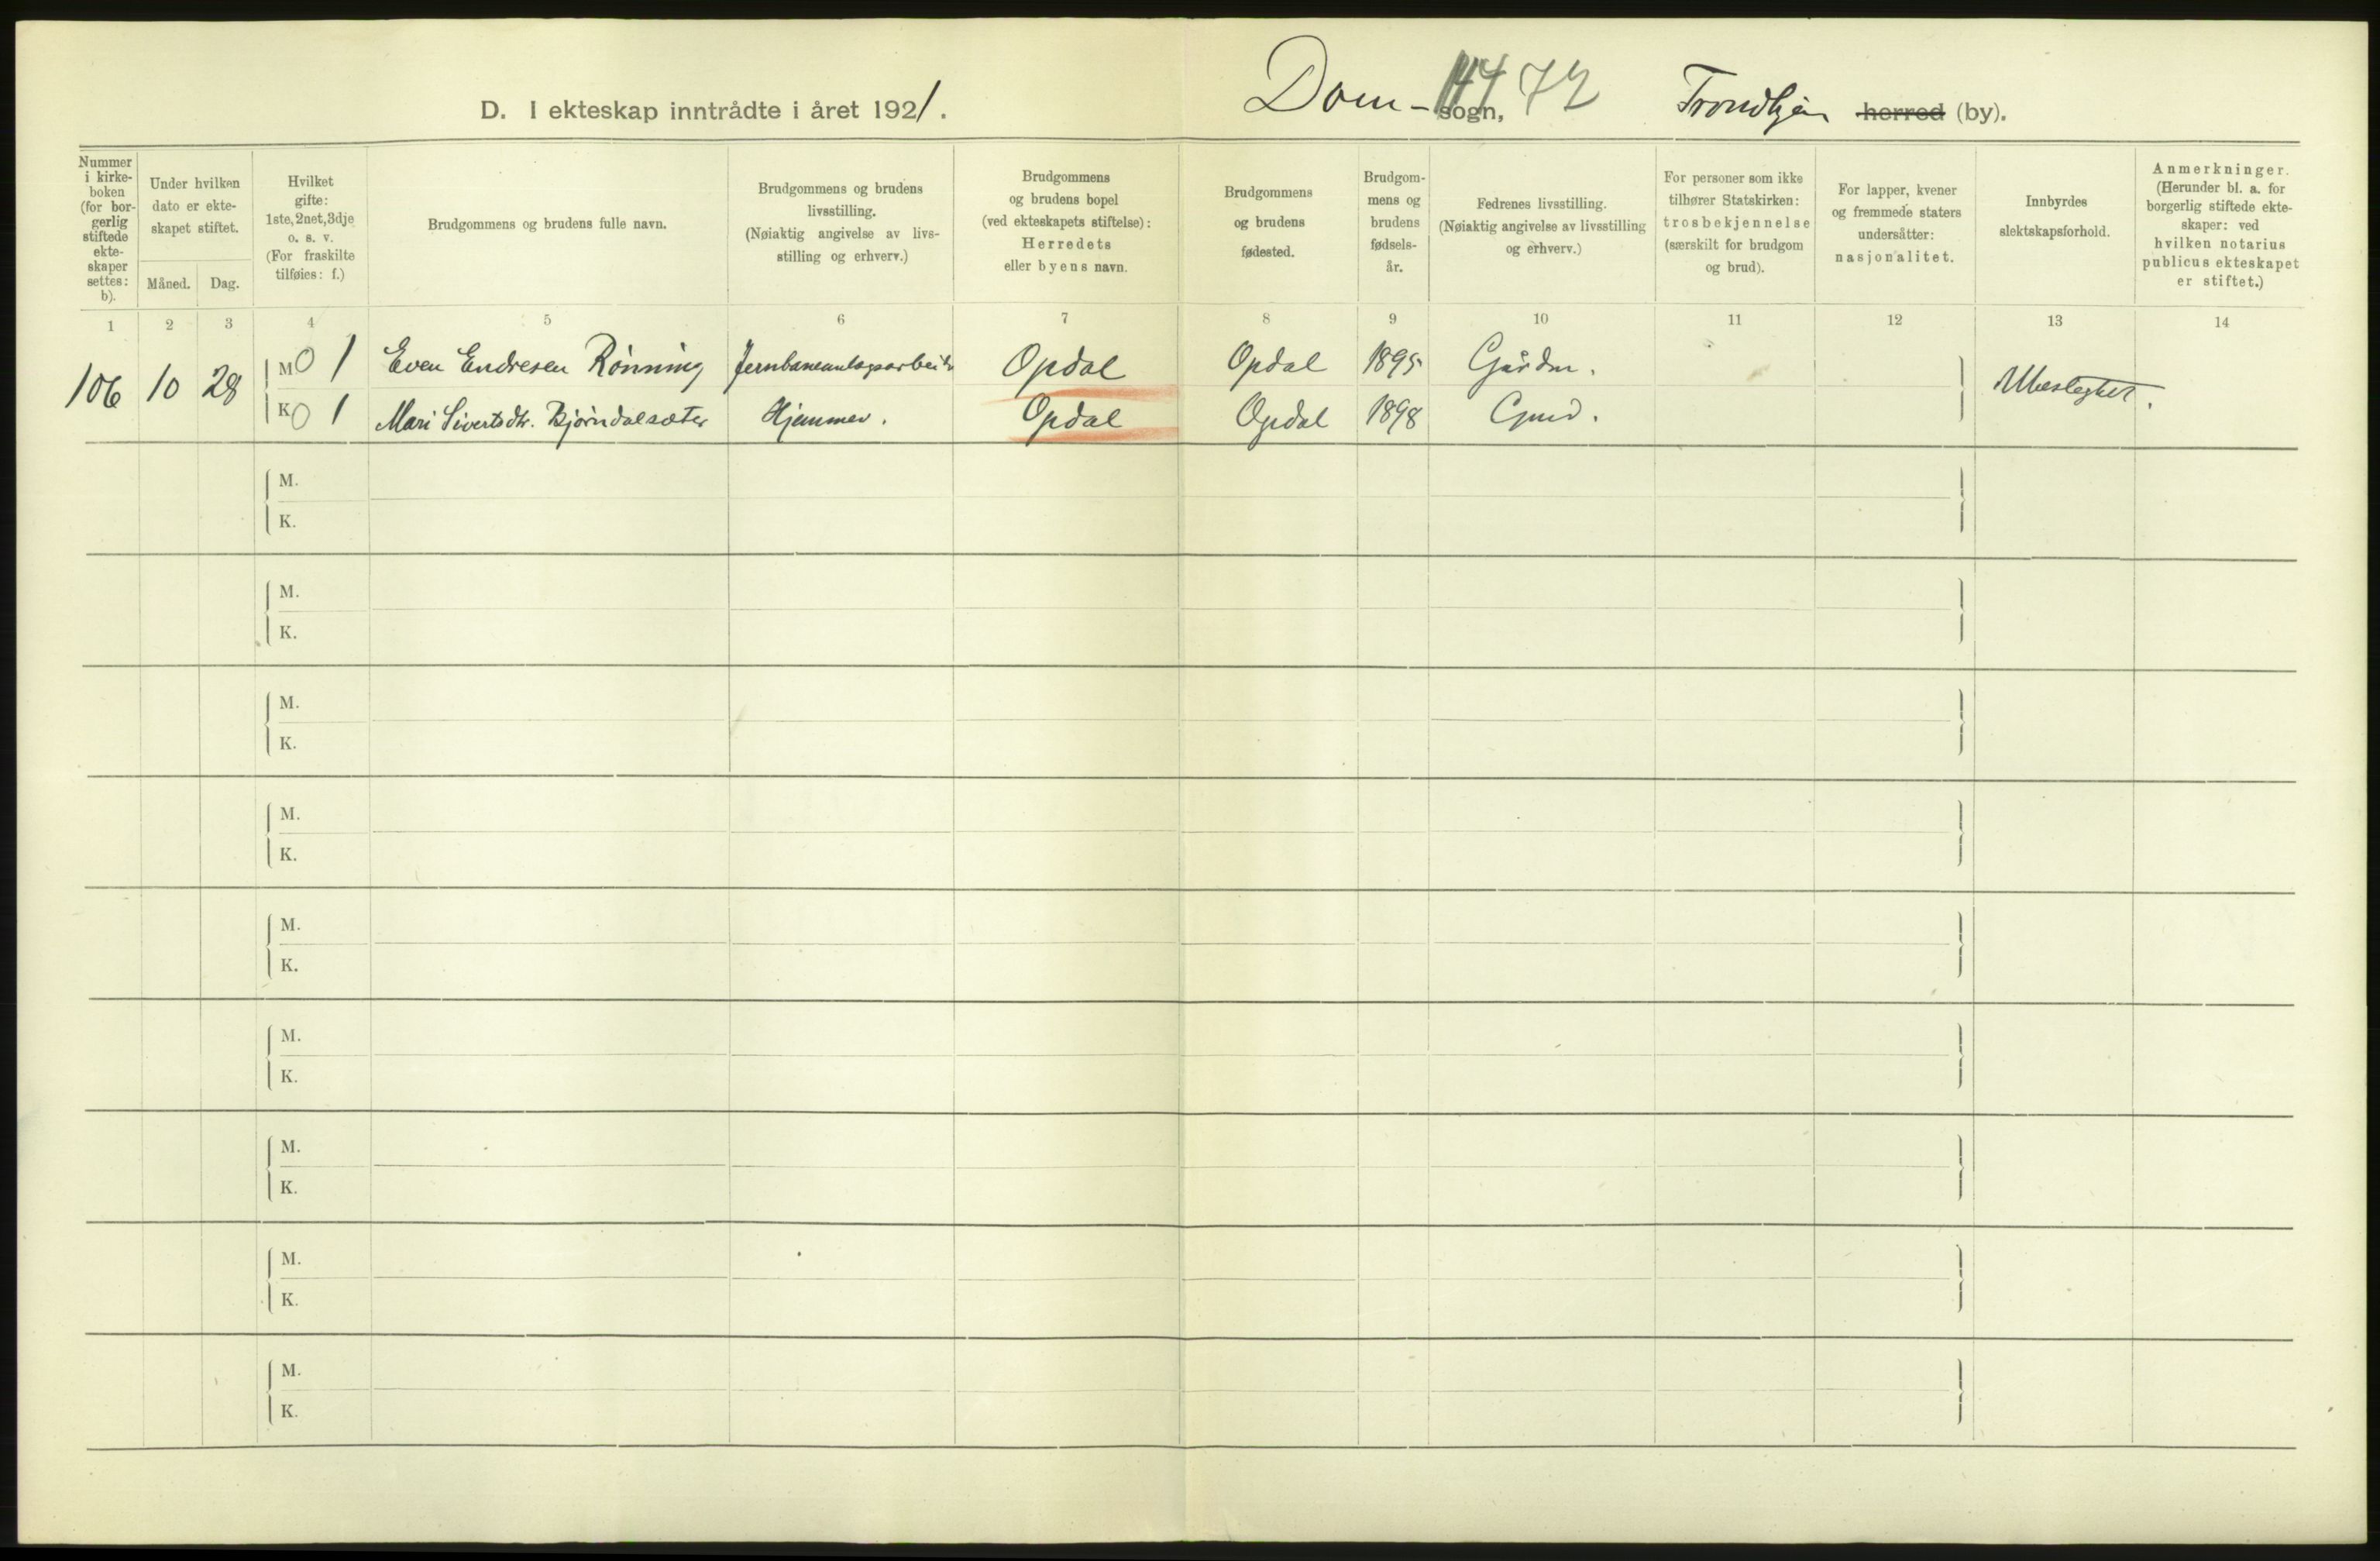 D. I ekteskap inntrådte i året 1921. Dom-sogn, 72 Trondhjem herred (by).
Nummer
i kirke-
boken
(for bor-
gerlig
stiftede
ekte-
skaper
settes:
b).
Under hvilken
dato er ekte-
skapet stiftet.
Måned. Dag.
Hvilket
gifte:
1ste, 2net, 3dje
o. s. v.
(For fraskilte
tilføies: f.)
Brudgommens og brudens fulle navn.
Brudgommens og brudens
livsstilling.
(Nøiaktig angivelse av livs-
stilling og erhverv.)
Brudgommens
og brudens bopel
(ved ekteskapets stiftelse):
Herredets
eller byens navn.
Brudgommens
og brudens
fødested.
Brudgom-
mens og
brudens
fødsels-
år.
Fedrenes livsstilling.
(Nøiaktig angivelse av livsstilling
og erhverv.)
For personer som ikke
tilhører Statskirken:
trosbekjennelse
(særskilt for brudgom
og brud).
For lapper, kvener
og fremmede staters
undersåtter:
nasjonalitet.
Innbyrdes
slektskapsforhold.
Anmerkninger.
(Herunder bl. a. for
borgerlig stiftede ekte-
skaper: ved
hvilken notarius
publicus ekteskapet
er stiftet.)
1 2 3 4 5 6 7 8 9 10 11 12 13 14
106 10 28
M 0 1 Even Endresen Rønning Jernbaneanlegsarbeider Opdal Opdal 1895 Gårdm.
K 0 1 Mari Sivertsdtr. Bjørndalsæter Hjemmev. Opdal Opdal 1898 Gmd.
Ubeslegtet.
M.
K.
M.
K.
M.
K.
M.
K.
M.
K.
M.
K.
M.
K.
M.
K.
M.
K.